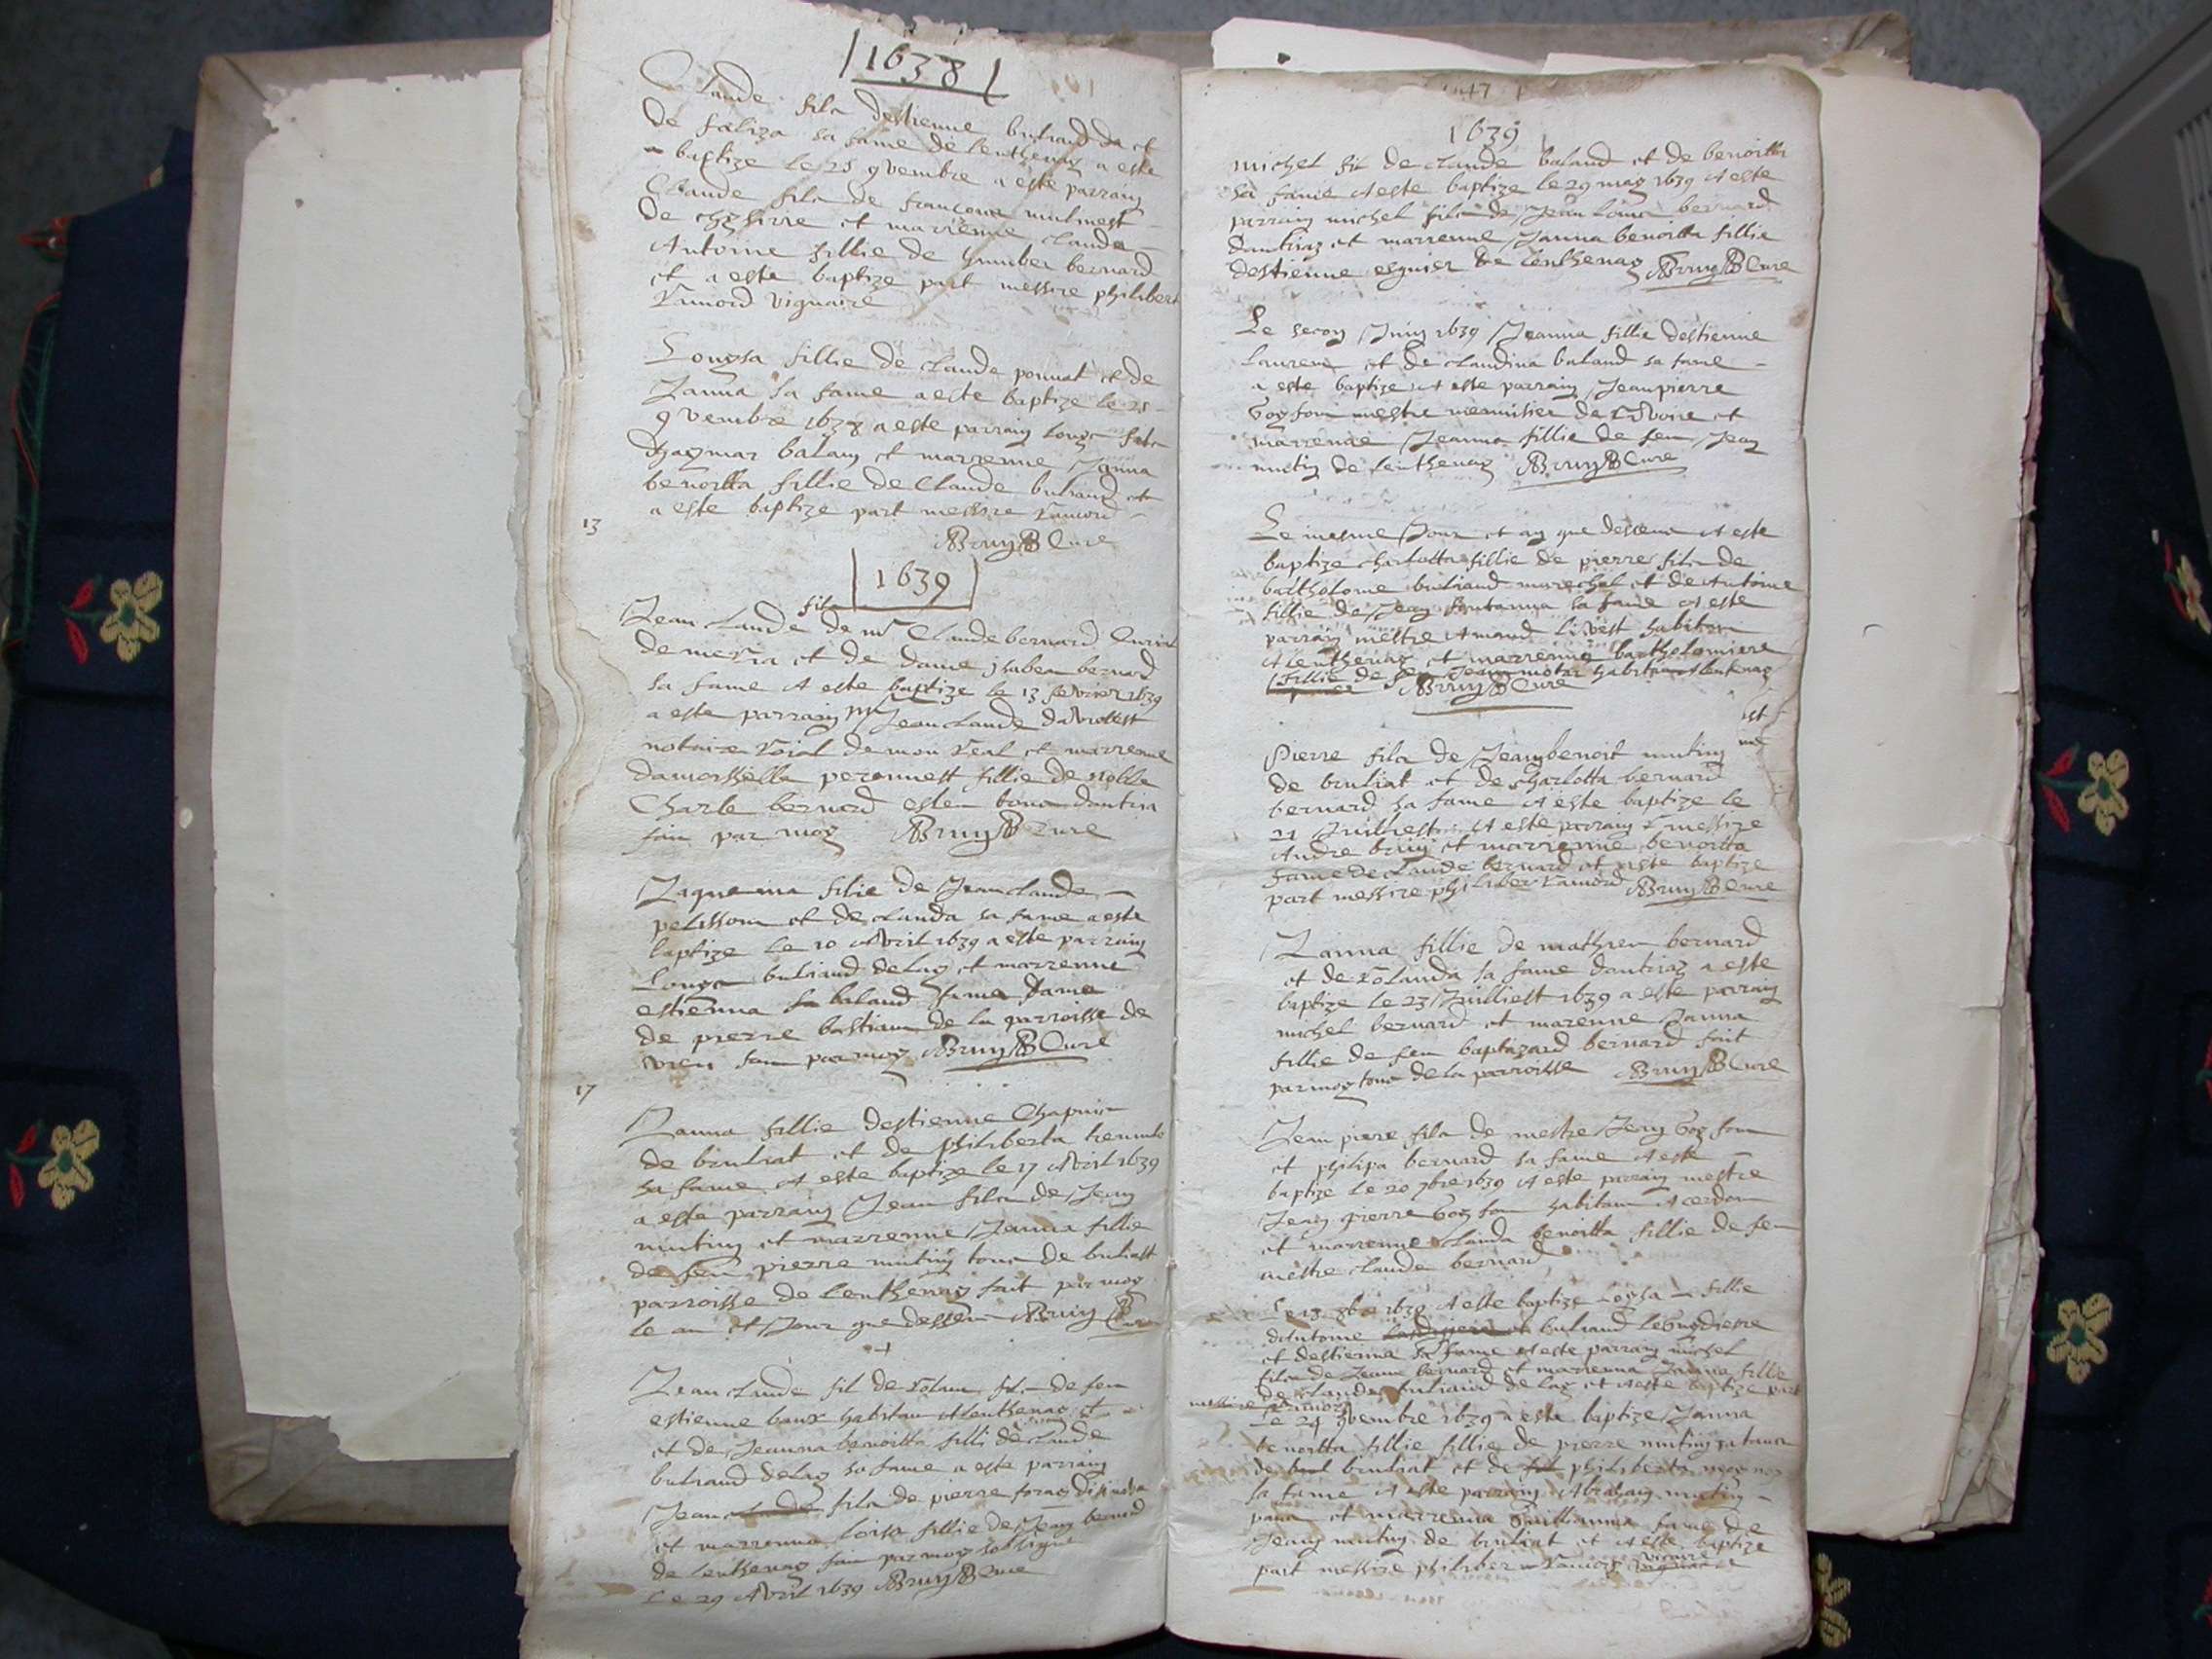 1638
Claude fils destienne buliand da et
de faliza sa fame de lenthenay a este
baptize le 25 9vembre a este parrain
Claude fils de francoea mulinest
de et marrenne clauda
Antoine fillie de humber bernard
et a este baptize part messire philibert
Ramord viguaire
Louysa fillie de claude ponnat et de
Janna sa fame a este baptize le 25
9vembre 1638 a este parrain louys fils
balay et marrenne Janna
benoitta fillie de Claude buliand et
a este baptize part messire Ramord
13
Bruy Cure
1639
fils
Jean claude de mr Claude bernard Curial
de et de dame ysabea bernard
sa fame A este baptize le 13 fevrier 1639
a este parrain mr Jean claude daviollest
notaire roial de mon real et marrenne
damoisselle peronnest fillie de noble
Charle bernard dantira
fait par moy Bruy Cure
Jaquema filie de Jean claude
pelisson et de clauda sa fame a este
baptize le 10 Avril 1639 a este parrain
Louys buliand delay et marrenne
estienna baland fame
de pierre bastian de la parroisse de
vieu fait par moy Bruy Cure
17
Janna fillie destienne Chapuis
de bruliat et de philiberta
sa fame A este baptize le 17 Avril 1639
a este parrain Jean fils de Jean
mutin et marrenne Janna fillie
de feu pierre mutin tous de buliatt
parroisse de lenthenay fait par moy
le an et Jour que dessus Bruy Cure
Jean claude fil de Rolan fils de feu
estienne baux habitan A lenthenay et
et de Jeanna benoitta filli de claude
buliand delay sa fame a este parrain
Jean claude fils de pierre
et marrenna loisa fillie de Jean bernard
de lenthenay fait par moy soussigne
Le 29 Avril 1639 Bruy Cure
47
1639
michel fil de claude baland et de benoitta
sa fame A este baptize le 29 may 1639 A este
parrain michel fils de Jean louis bernard
dantiraz et marrenne Janna benoitta fillie
destienne de lenthenay Bruy Cure
Le secon Juin 1639 Jeanna fillie destienne
Laurent et de claudina baland sa fame
a este baptize A este parrain Jean pierre
Goyfon mestre menuisier de et
marrenne Jeanna fillie de feu Jean
mutin de lenthenay Bruy Cure
Le mesme Jour et an que dessus A este
baptize charlotta fillie de pierre fils de
bartholome buliand marechal et de Antoine
fillie de Jean fontanna sa fame A este
parrain mestre Amand habitan
A lenthenay et marrenne bartholomiere
fillie de feu Jean habitan A lentenay
Bruy Cure
Pierre fils de Jean benoit mutin
de bruliat et de charlotta bernard
bernard sa fame A este baptize le
21 Juilliest A este parrain messire
Andre bruy et marrenne benoitta
fame de claude bernard et a este baptize
part messire philiber Ramord Bruy Cure
Janna fillie de mathieu bernard
et de Rolanda sa fame dantiraz a este
baptize le 23 Juilliest 1639 a este parrain
michel bernard et marenne Janna
fillie de feu baptazard bernard fait
par moy tous de la parroisse Bruy Cure
Jean pierre fils de mestre Jean Goyfon
et philipa bernard sa fame A este
baptize le 20 7bre 1639 A este parrain mestre
Jean pierre Goyfon habitan A cerdon
et marrenne clauda benoitta fillie de feu
mestre claude bernard
Le 13 8bre 1639 A este baptize loysa fillie
dAntoine buliand
et destienna sa fame A este parrain michel
fils de Jeanne bernard et marrenna Janna fillie
de claude buliand de lay et A este baptize part
messire Ramord
Le 24 9vembre 1639 a este baptize Janna
benoitta fillie fillie de pierre mutin
de bruliat et de philiberta
sa fame A este parrain Abraham mutin
et marrenna Guillauma fame de
Jean mutin de bruliat et A este baptize
part messire philiber Ramord vicaire